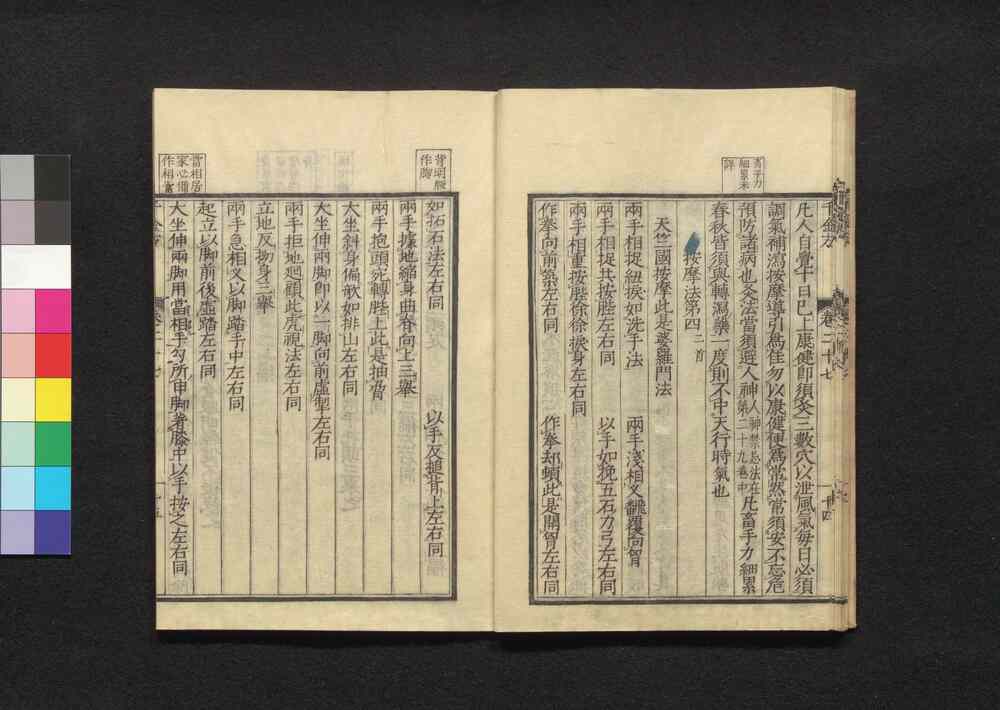 畜手力
細累未
詳
千金方
卷二十七
十四
凡人自覺十日已上康健即須灸三數穴以泄風氣每日必須
調氣補瀉按摩導引爲佳勿以康健便爲常然常須安不忘危
預防諸病也灸法當須避人神人神禁忌法在第二十九卷中凡畜手力細累
春秋皆須與轉瀉藥一度則不中天行時氣也
按摩法第四二首
天竺國按摩此是婆羅門法
兩手相捉紐捩如洗手法　兩手淺相叉翻覆向胷
兩手相捉共按䏶左右同　以手如挽五石力弓左右同
兩手相重按䏶徐徐捩身左右同
作拳向前築左右同　作拳却頓此是開胷左右同
背明版
作胸
如拓石法左右同　以手反搥背上左右同
兩手據地縮身曲脊向上三舉
兩手抱頭宛轉䏶上此是抽脅
大坐斜身偏欹如排山左右同
大坐伸兩脚即以一脚向前虛掣左右同
兩手拒地廻顧此虎視法左右同
立地反拗身三舉
兩手急相叉以脚踏手中左右同
起立以脚前後虛踏左右同
大坐伸兩脚用當相手勾所申脚著膝中以手按之左右同
當相居
家必備
作相當